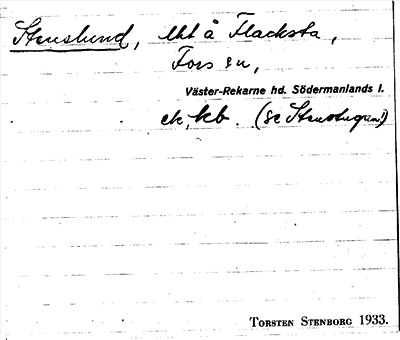 Stenslund, lht å Flacksta,
Fors sn,
Väster-Rekarne hd. Södermanlands l.
ek, kb. (se Stenstugan!)
TORSTEN STENBORG 1933.